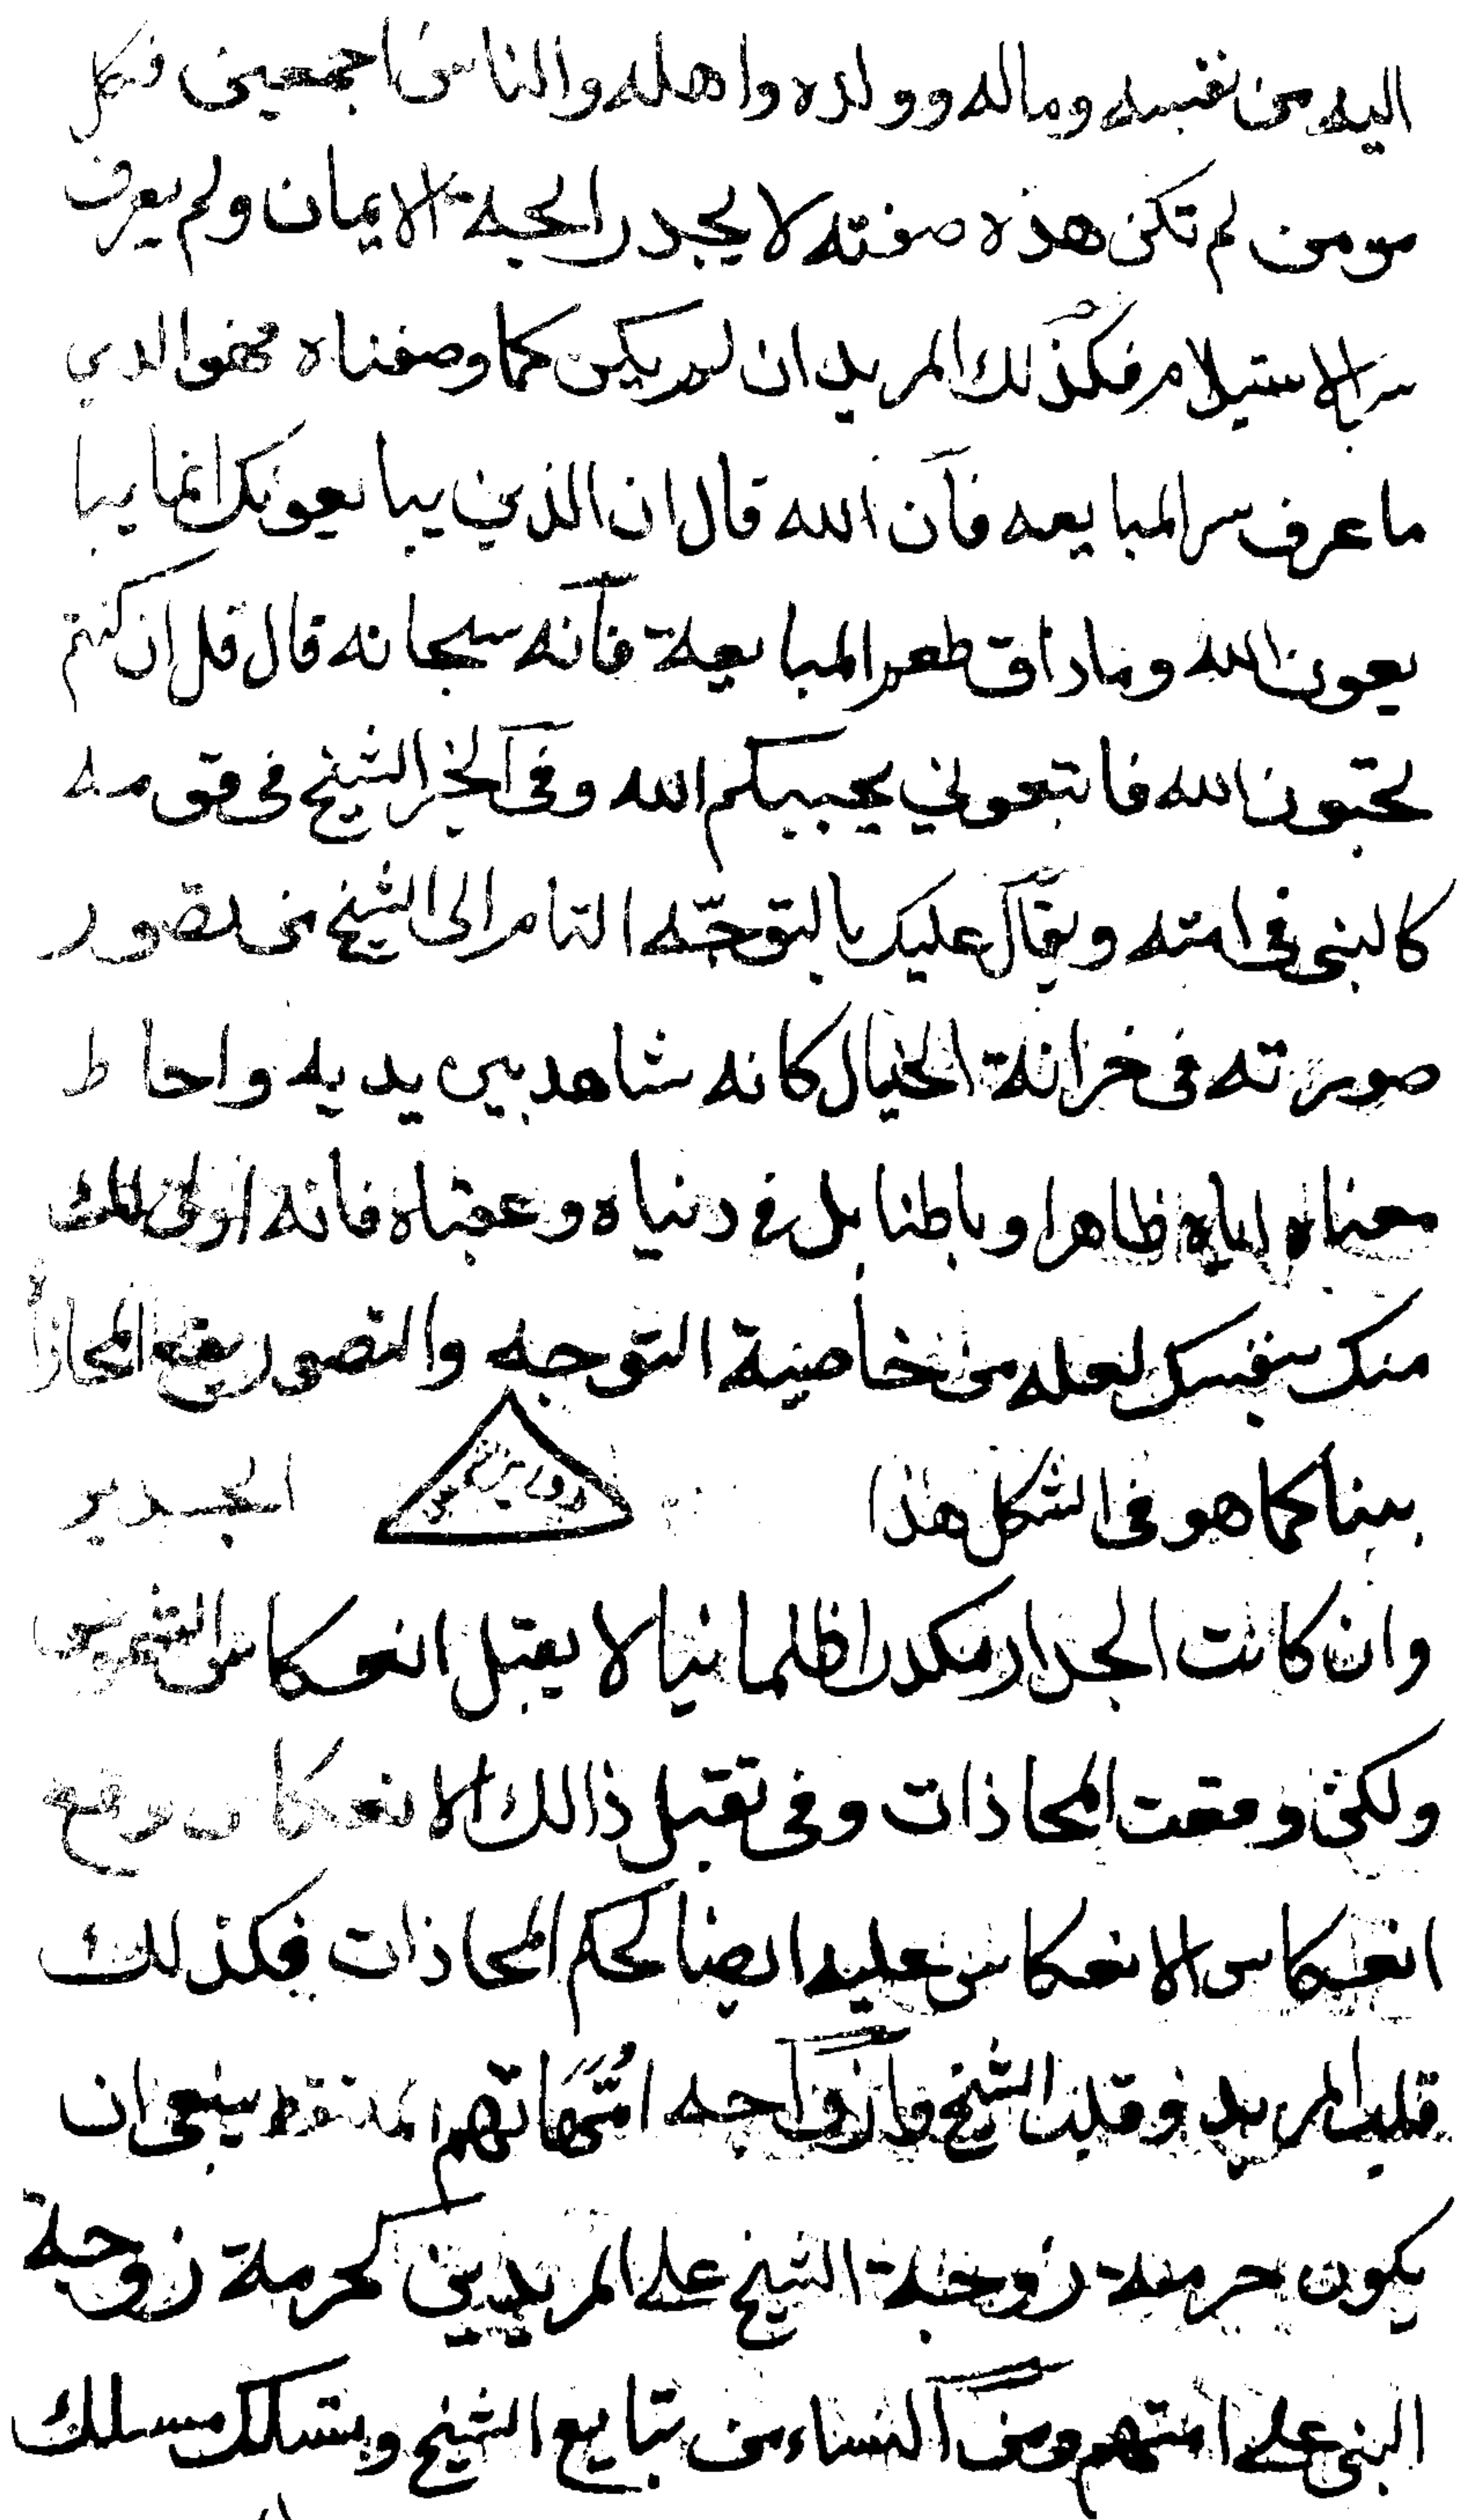 اليه من نفسه وماله وولده واهله والناس اجمعين فكل
مومن لم تكن هذه صفته لا يجد رايحة الايمان ولم يعرف
سر الاستيلام فكذلك المريد ان لم يكن كما وصفناه فهو الذي
ما عرف سر المبايعه فان الله قال ان الذين يبايعونك انما يبا
يعون الله وما ذاق طعم المبايعة فانه سبحانه قال قل ان كنتم
تحبون الله فاتبعوني يحببكم الله وفي الخبر الشيخ في قومه
كالنبى في امته ويقال عليك بالتوجّه التام الى الشيخ تصور
صورته فى خزانة الخيال كانه شاهد بين يديه واحاط
معناه اياه ظاهرا وباطنا بل في دنياه وعقباه فانه اولى لك
منك بنفسك لعله من خاصية التوجه والتصور يقع المحاذا
بيننا كما هو فى الشكل هذا الجدير
وان كانت الجدار مكدرا ظلمانيا لا يقبل انعكاس الشموس
ولكن وقعت المحاذات وفى تقبل ذالك الانعكاس وقع
انعكاس الانعكاس عليه ايضا لحكم المحاذات فكذلك
قلب المريد وقلب الشيخ وازواجه امّهاتهم ينبغى ان
يكون حرمة زوجة الشيخ على المريدين كحرمة زوجة
النبى على امتهم ومن النساء من تبايع الشيخ وتسلك مسلك